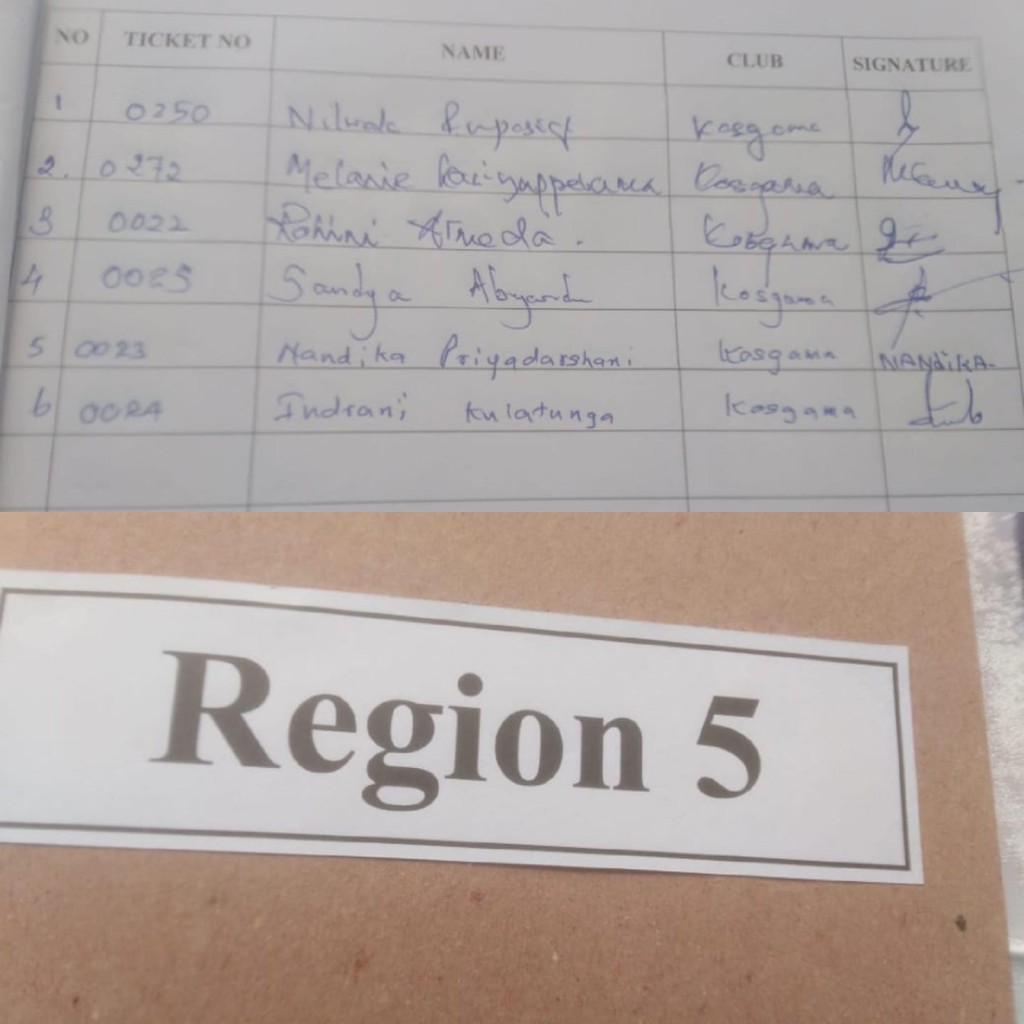 NO TICKET NO NAME CLUB SIGNATURE
1 0250 Kosgama
2. 0272 Melanie Kosgama
3 0022 Rohini Almeda. Kosgama
4 0025 Sandya Kosgama
5 0023 Nandika Priyadarshani Kosgama NANdikA
6 0024 Indrani Kulatunga Kosgama
Region 5